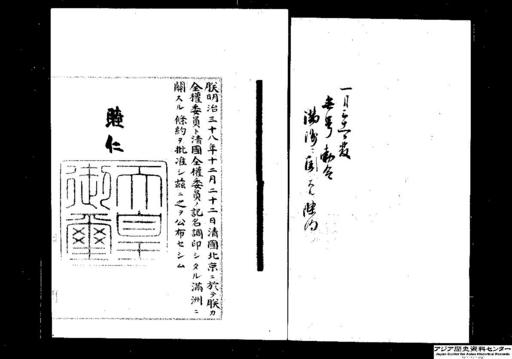 一月三十一日発
無号勅令
満洲ニ関スル条約
朕明治三十八年十二月二十二日清國北京ニ於テ朕カ
全權委員ト清國全權委員ノ記名調印シタル滿洲ニ
關スル條約ヲ批准シ茲ニ之ヲ公布セシム
睦仁
天皇
御璽
アジア歴史資料センター
Japan Center for Asian Historical Records